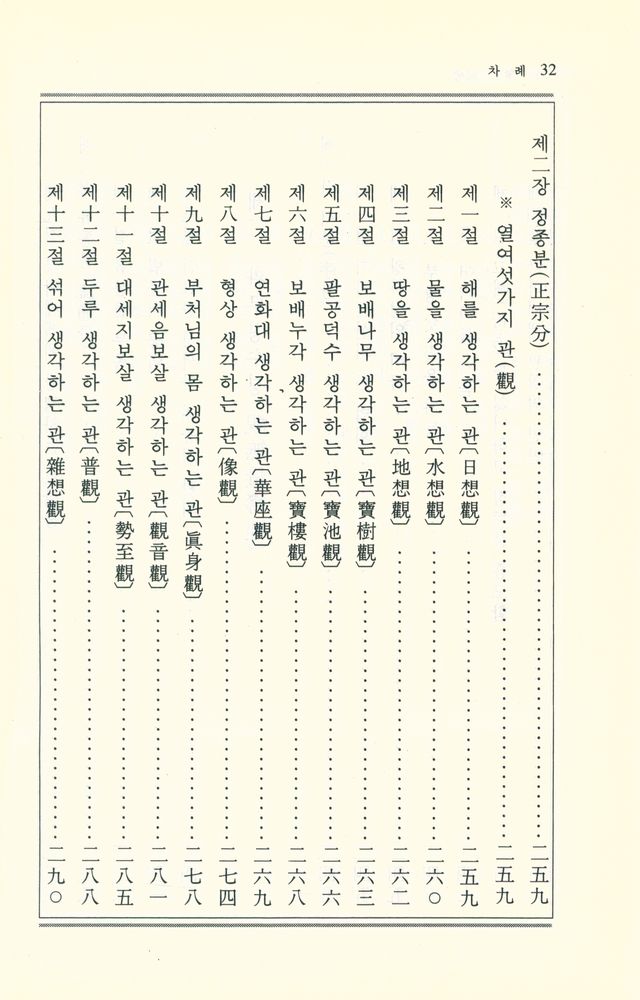 차 례 32
제二장 정종분(正宗分) ································ 二五九
※ 열여섯가지 관(觀) ································ 二五九
제一절 해를 생각하는 관〔日想觀〕 ································ 二五九
제二절 물을 생각하는 관〔水想觀〕 ································ 二六○
제三절 땅을 생각하는 관〔地想觀〕 ································ 二六二
제四절 보배나무 생각하는 관〔寶樹觀〕 ································ 二六三
제五절 팔공덕수 생각하는 관〔寶池觀〕 ································ 二六六
제六절 보배누각 생각하는 관〔寶樓觀〕 ································ 二六八
제七절 연화대 생각하는 관〔華座觀〕 ································ 二六九
제八절 형상 생각하는 관〔像觀〕 ································ 二七四
제九절 부처님의 몸 생각하는 관〔眞身觀〕 ································ 二七八
제十절 관세음보살 생각하는 관〔觀音觀〕 ································ 二八一
제十一절 대세지보살 생각하는 관〔勢至觀〕 ································ 二八五
제十二절 두루 생각하는 관〔普觀〕 ································ 二八八
제十三절 섞어 생각하는 관〔雜想觀〕 ································ 二九○